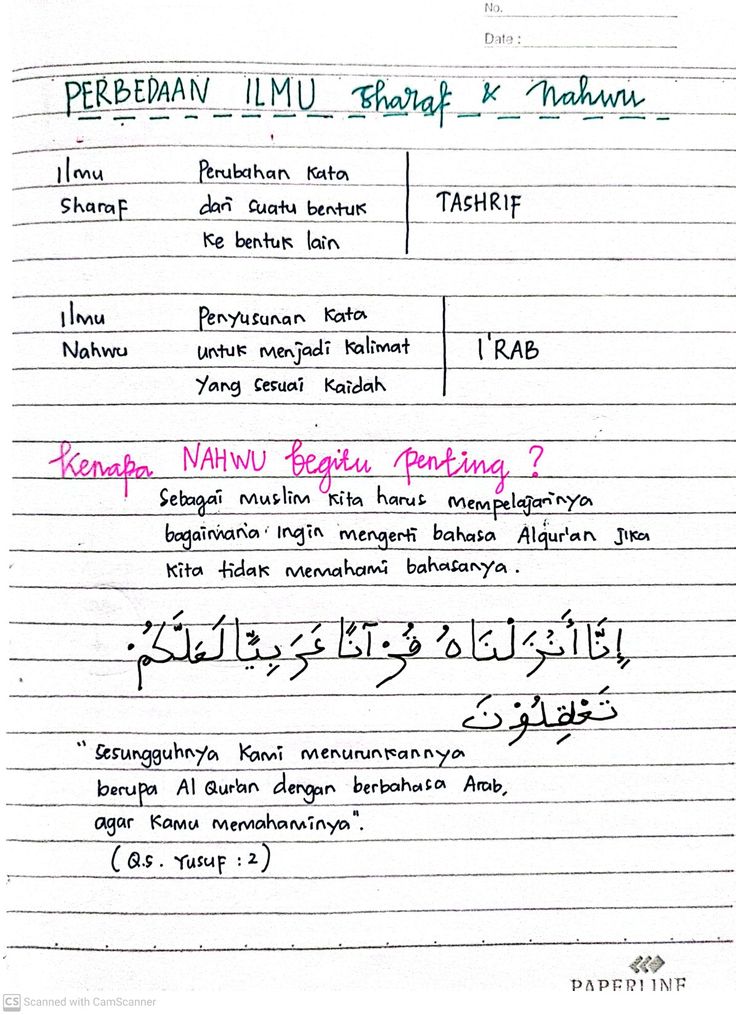 No.
Date :
PERBEDAAN ILMU sharaf & Nahwu
Ilmu Perubahan kata
Sharaf dari suatu bentuk TASHRIF
ke bentuk lain
Ilmu Penyusunan kata
Nahwu untuk menjadi kalimat I'RAB
yang sesuai kaidah
Kenapa NAHWU begitu penting ?
Sebagai muslim kita harus mempelajarinya
bagaimana ingin mengerti bahasa Alqur'an jika
kita tidak memahami bahasanya.
إِنَّا أَنْزَلْنَاهُ قُرْآنًا عَرَبِيًّا لَعَلَّكُمْ
تَعْقِلُوْنَ
"Sesungguhnya kami menurunkannya
berupa Al Qur'an dengan berbahasa Arab,
agar kamu memahaminya".
(Q.S. Yusuf : 2)
PAPERLINE
CS Scanned with CamScanner